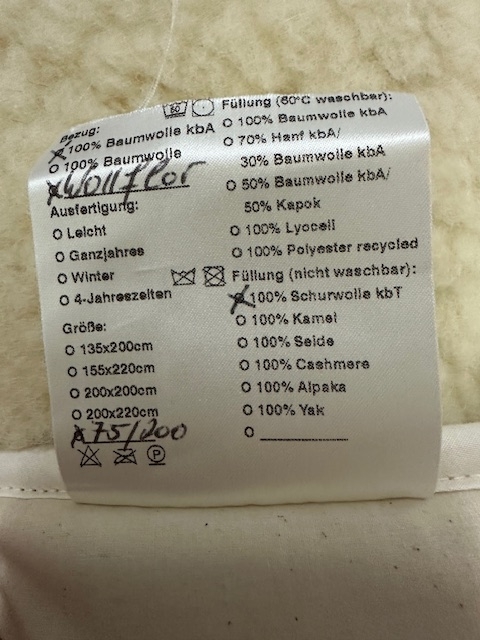 Bezug:
100% Baumwolle kbA
100% Baumwolle
Wollflor
Ausfertigung:
Leicht
Ganzjahres
Winter
4-Jahreszeiten
Größe:
135x200cm
155x220cm
200x200cm
200x220cm
75/200
P
60
Füllung (60°C waschbar):
100% Baumwolle kbA
70% Hanf kbA/
30% Baumwolle kbA
50% Baumwolle kbA/
50% Kapok
100% Lyocell
100% Polyester recycled
Füllung (nicht waschbar):
100% Schurwolle kbT
100% Kamel
100% Seide
100% Cashmere
100% Alpaka
100% Yak